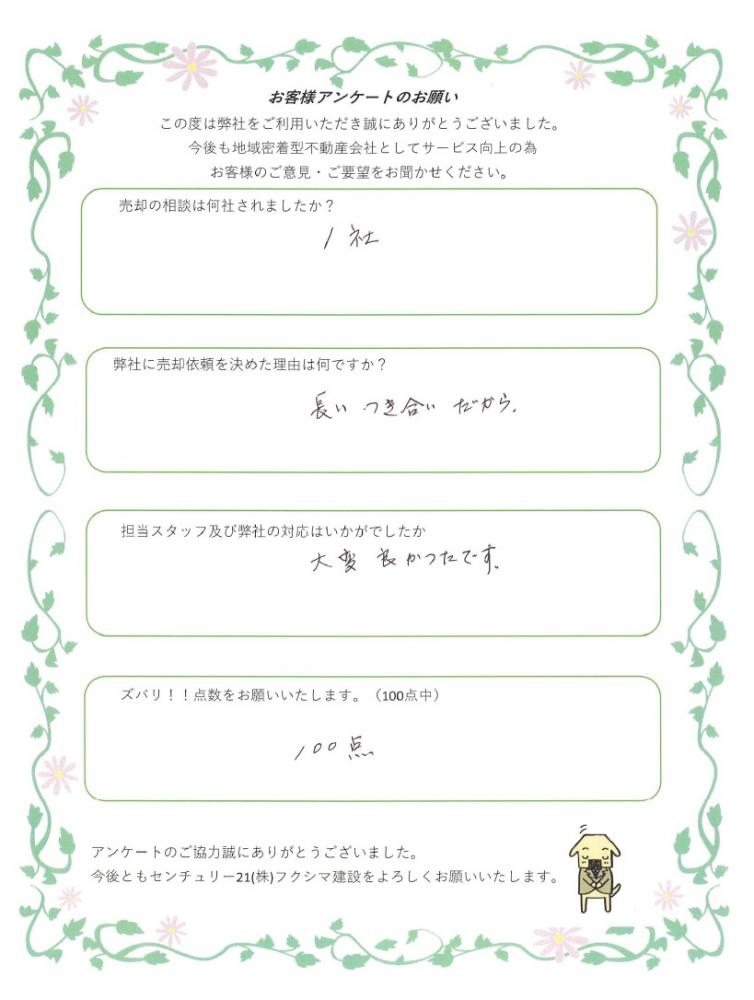 お客様アンケートのお願い
この度は弊社をご利用いただき誠にありがとうございました。
今後も地域密着型不動産会社としてサービス向上の為
お客様のご意見・ご要望をお聞かせください。
売却の相談は何社されましたか？
1社
弊社に売却依頼を決めた理由は何ですか？
長いつき合いだから.
担当スタッフ及び弊社の対応はいかがでしたか
大変良かったです。
ズバリ！！点数をお願いいたします。（100点中）
100点
アンケートのご協力誠にありがとうございました。
今後ともセンチュリー21(株)フクシマ建設をよろしくお願いいたします。